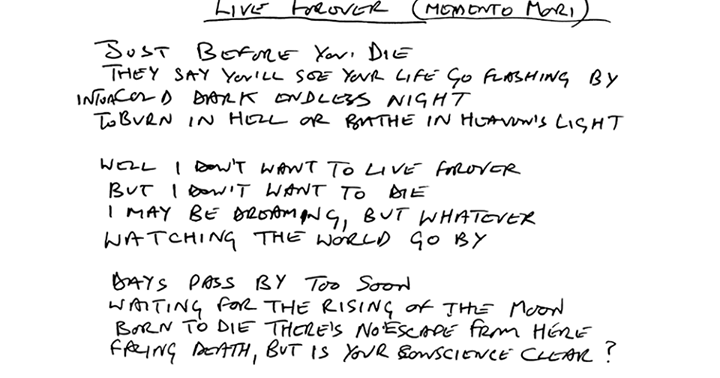 LIVE FOROVER (MEMENTO MORI)
JUST BEFORE YOU DIE
THEY SAY YOU'LL SEE YOUR LIFE GO FLASHING BY
INTO A COLD DARK ENDLESS NIGHT
TO BURN IN HELL OR BATHE IN HEAVEN'S LIGHT
WELL I DON'T WANT TO LIVE FOROVER
BUT I DON'T WANT TO DIE
I MAY BE DREAMING, BUT WHATEVER
WATCHING THE WORLD GO BY
DAYS PASS BY TOO SOON
WAITING FOR THE RISING OF THE MOON
BORN TO DIE THERE'S NO ESCAPE FROM HERE
FACING DEATH, BUT IS YOUR CONSCIENCE CLEAR?